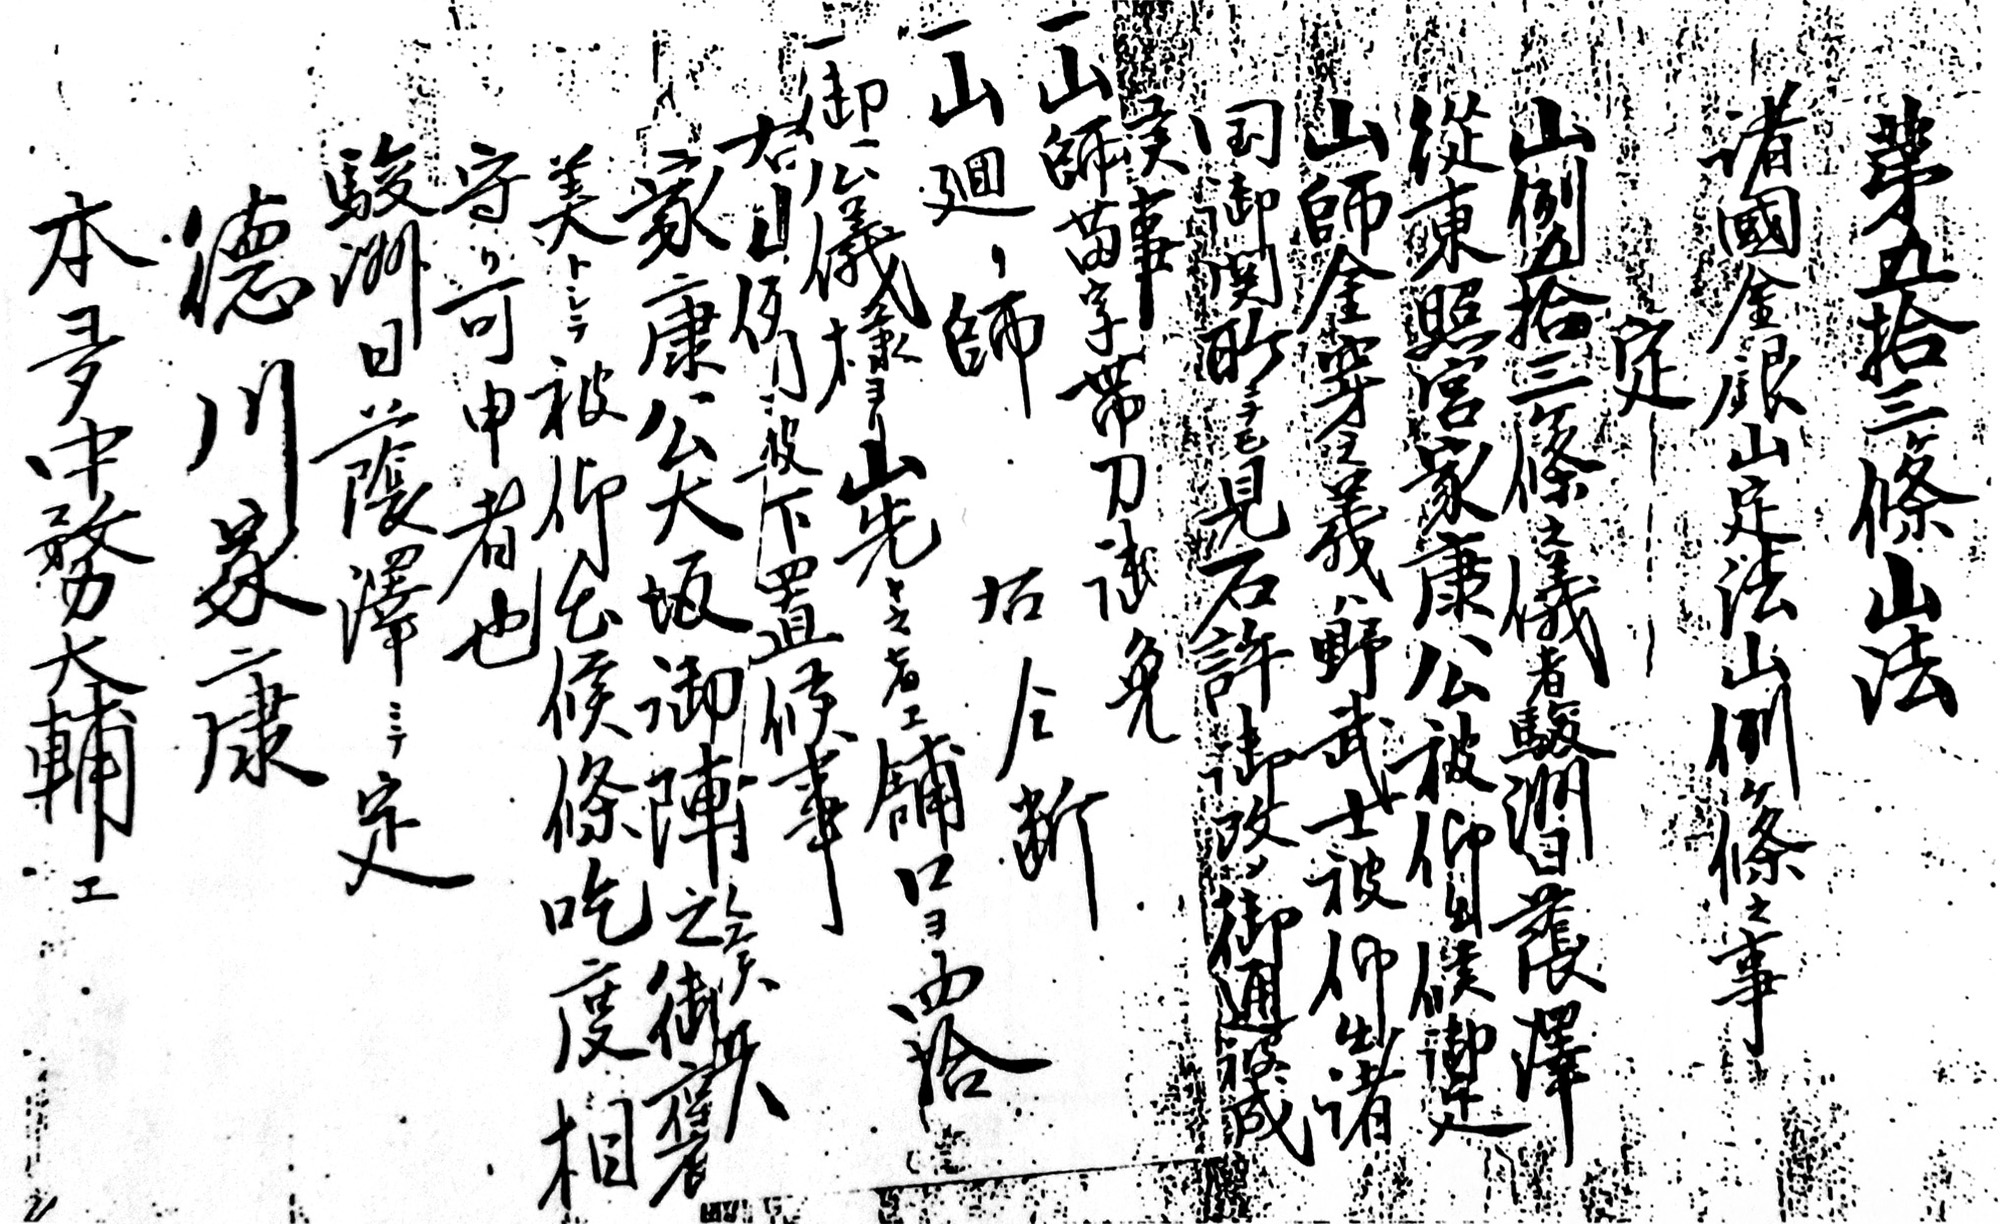 第五拾三條山法
諸國金銀山定法山例條之事
定
山例五拾三條之儀者駿洲日蔭澤
從東照宮家康公被仰出候御定
山師金穿之義ハ野武士被仰出諸
国御関所ニテモ見石許御改メ御通被成
候事
一山師苗字帯刀御免
一山廻リ師 右仝断
一御公儀様ヨリ山先ト云者エ舗口ヨ四拾
右山例被下置候事
家康公大坂御陣之御褒
美トシテ被仰出候條吃度相
守リ可申者也
駿洲日蔭澤ニテ定
德川家康
本多中務大輔エ